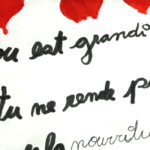 ou est grandi
tu ne rende p
la nourritu